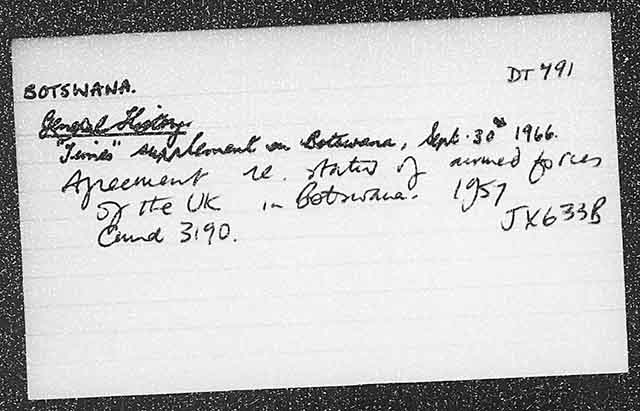 BOTSWANA. DT 791
General History.
"Times" supplement on Botswana, Sept. 30th 1966.
Agreement re. status of armed forces
of the UK in Botswana. 1957
Cmnd 3190. JX633B